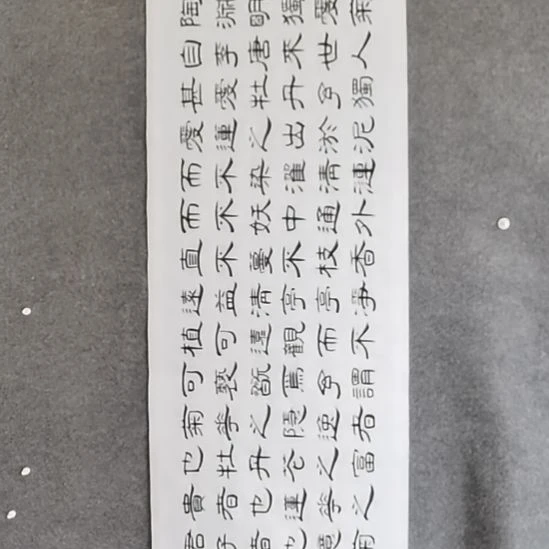 陶淵明獨愛菊
自李唐來世人
甚愛牡丹予獨
愛蓮之出淤泥
而不染濯清漣
而不妖中通外
直不蔓不枝香
遠益清亭亭淨
植可遠觀而不
可褻翫焉予謂
菊華之隱逸者
也牡丹花之富
貴者也蓮華之
君子者也噫菊